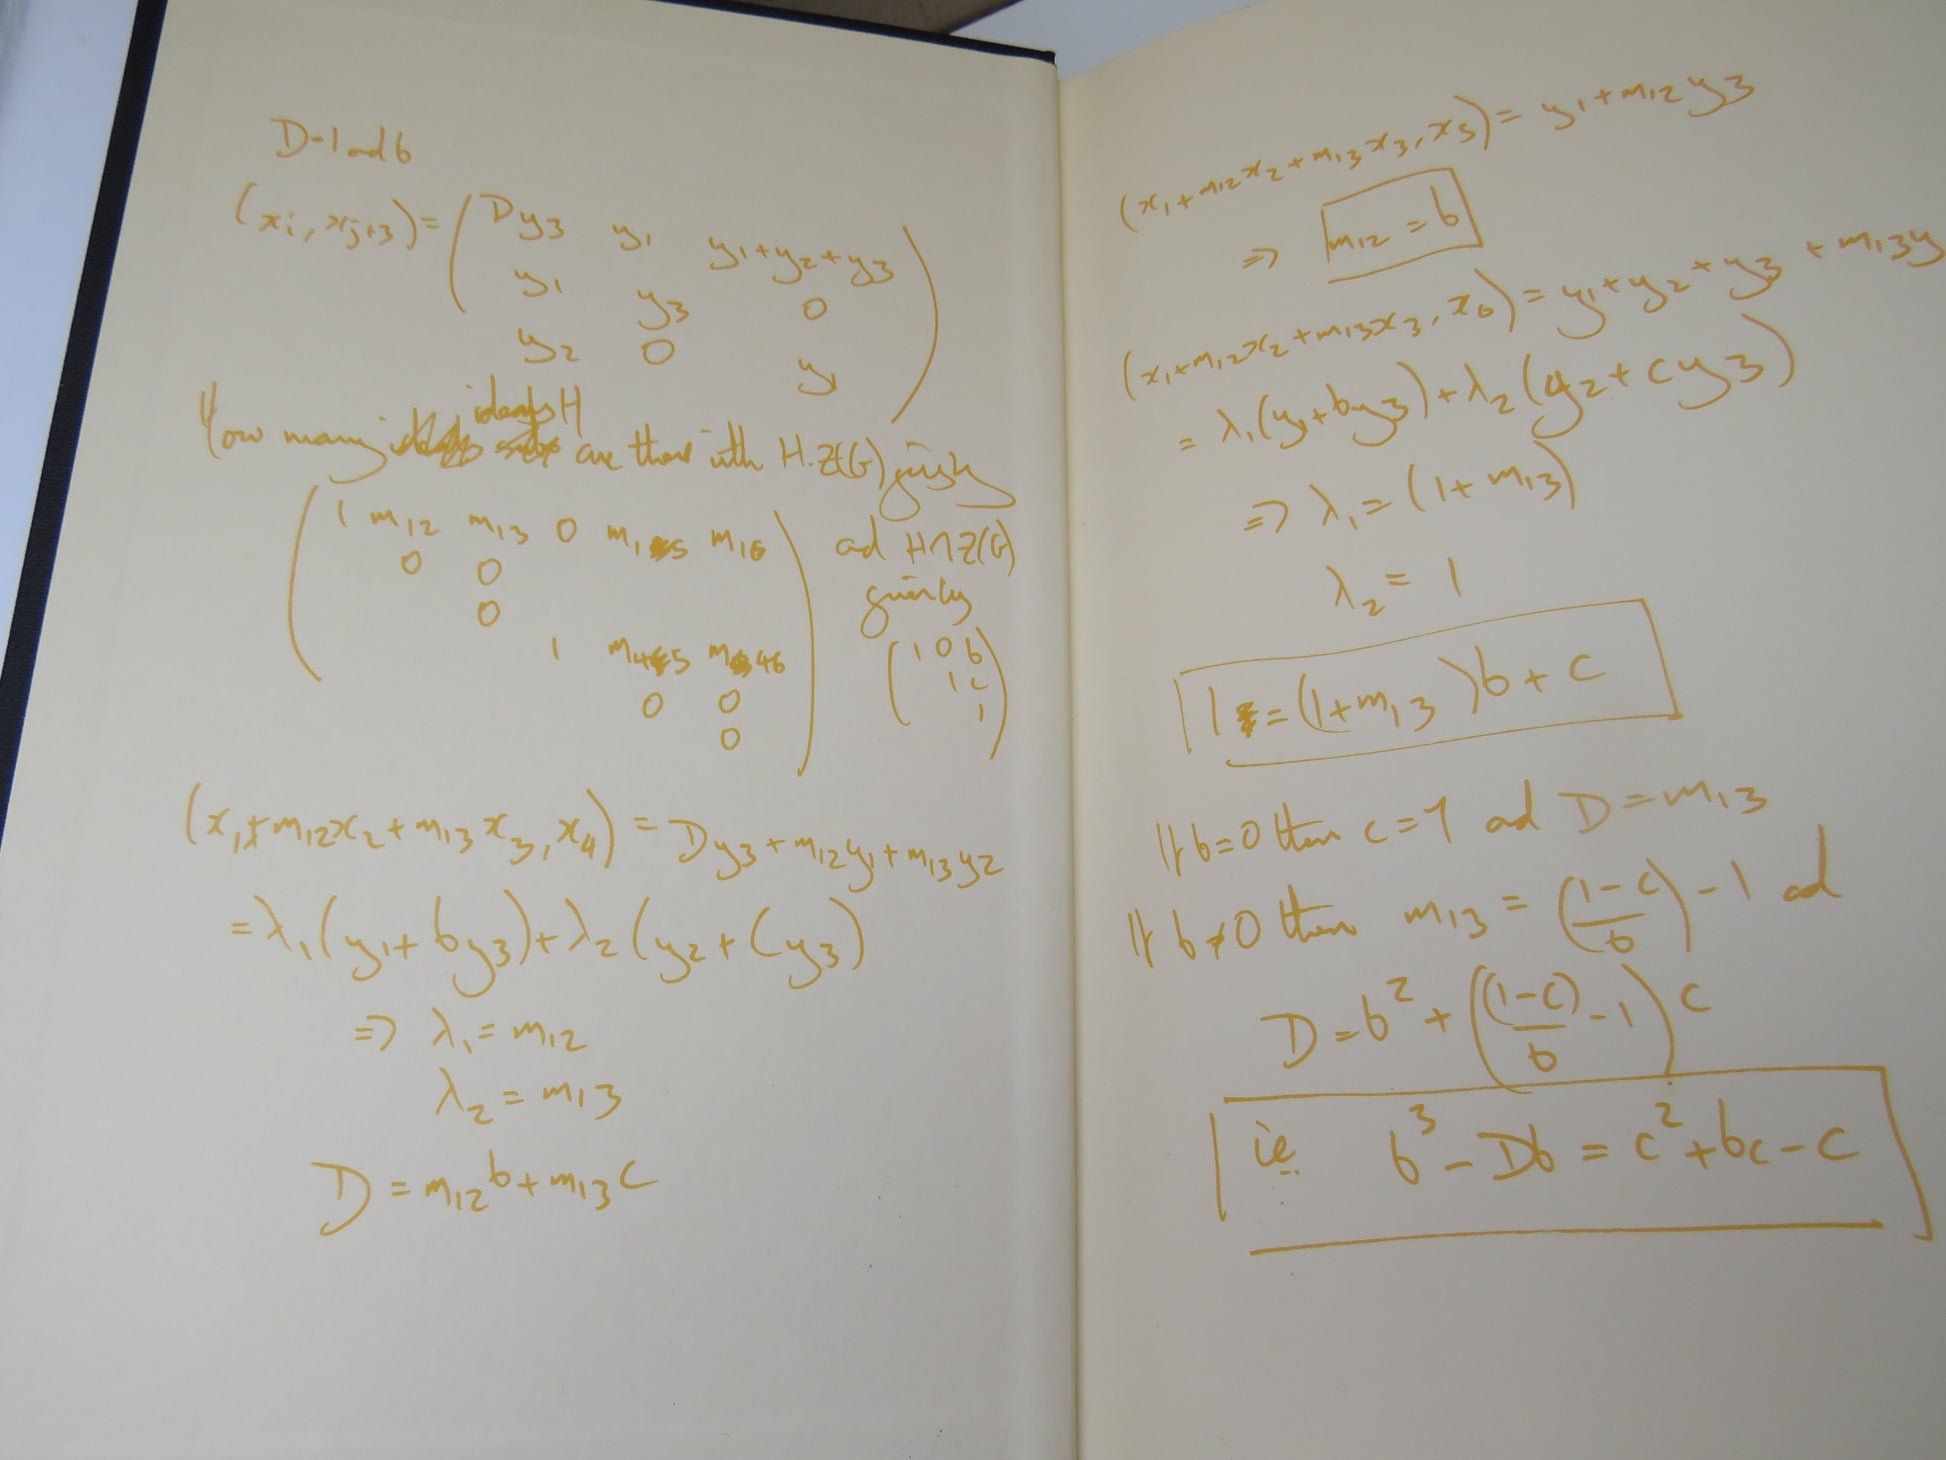 D-1 and 6
(xi, xj+3) = ( Dy3 y1 y1+y2+y3
y1 y3 0
y2 0 y1 )
How many ideals H are there with H.Z(G) given by
( 1 m12 m13 0 m15 m16
0 0
0
1 m45 m46
0 0
0 )
ad H∩Z(G)
given by
( 1 0 b
1 c
1 )
(x1+m12x2+m13x3, x4) = Dy3+m12y1+m13y2
= λ1(y1+by3)+λ2(y2+cy3)
=> λ1 = m12
λ2 = m13
D = m12b+m13c
(x1+m12x2+m13x3, x5) = y1+m12y3
=> m12 = b
(x1+m12x2+m13x3, x6) = y1+y2+y3+m13y
= λ1(y1+by3)+λ2(y2+cy3)
=> λ1 = (1+m13)
λ2 = 1
1 = (1+m13)b+c
If b=0 then c=1 ad D=m13
If b≠0 then m13 = ((1-c)/b) -1 ad
D = b² + ((1-c)/b -1) c
ie b³ - Db = c²+bc-c